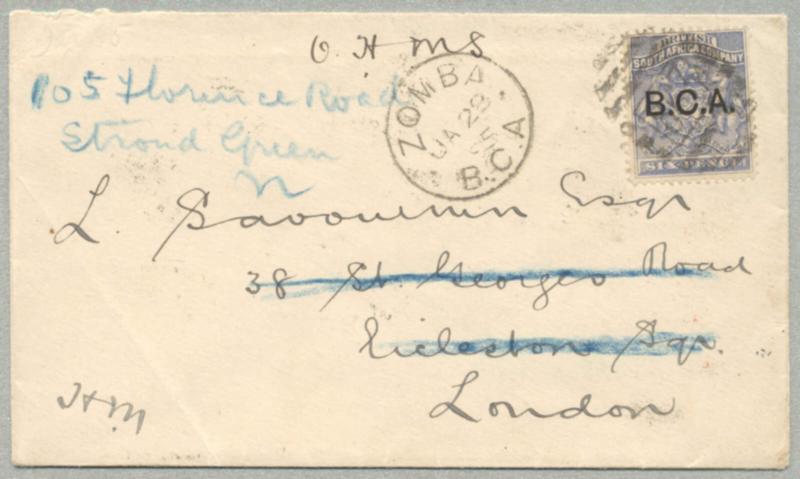 O H M S
105 Florence Road
Stroud Green
N
ZOMBA
JA 28
95
B.C.A
BRITISH
SOUTH AFRICA COMPANY
B.C.A.
SIX PENCE
L. Esqr
38 St. Georges Road
Eccleston Sqr.
London
HM